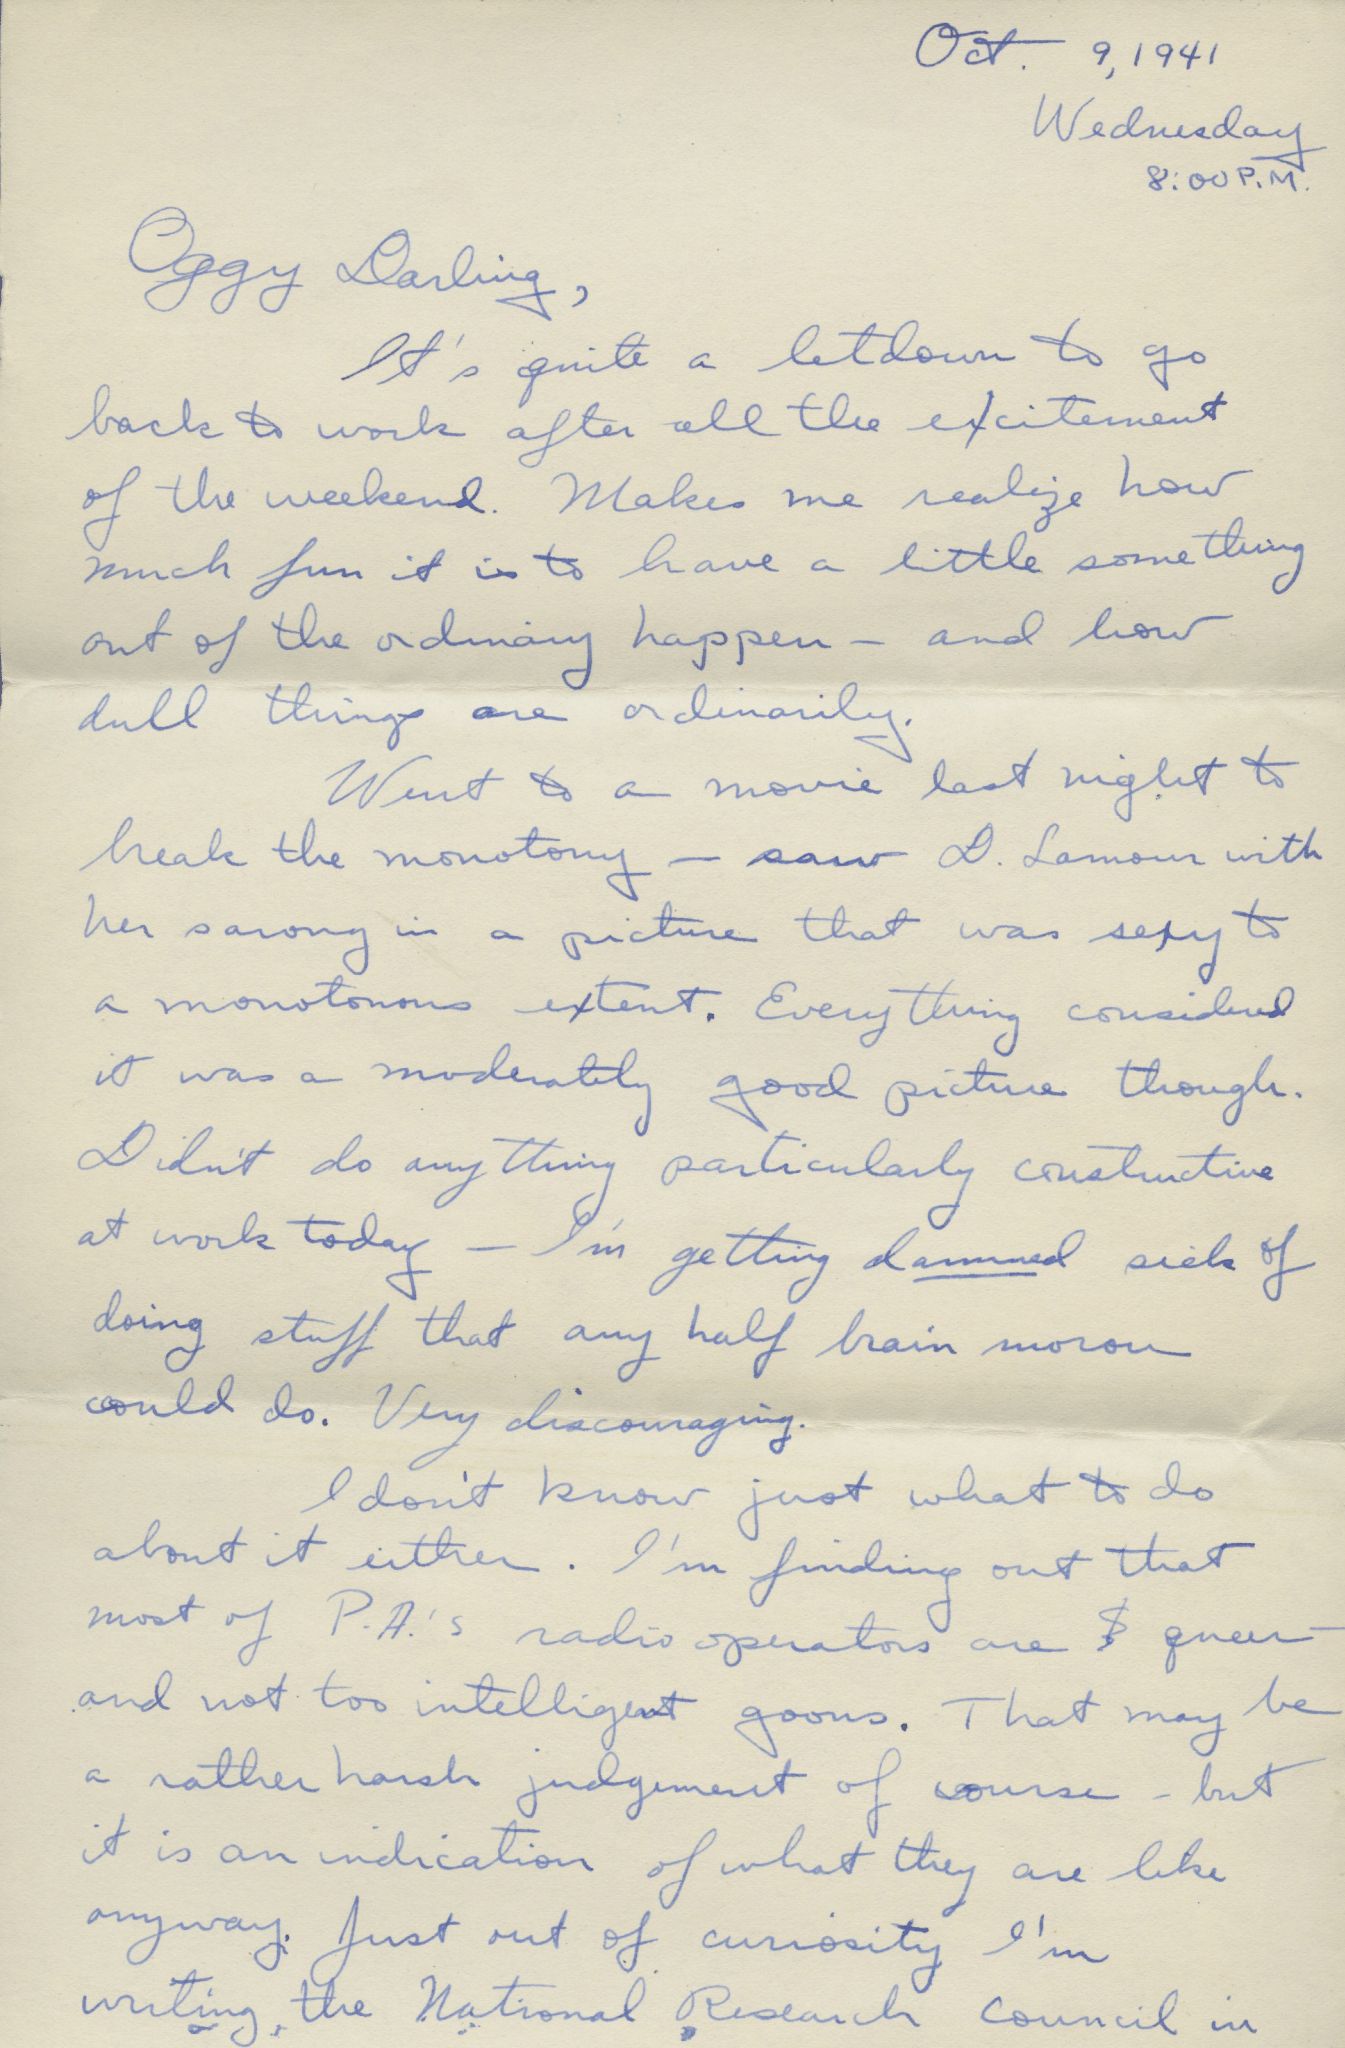 Oct. 9, 1941
Wednesday
8:00 P.M.
Oggy Darling,
It's quite a letdown to go
back to work after all the excitement
of the weekend. Makes me realize how
much fun it is to have a little something
out of the ordinary happen - and how
dull things are ordinarily.
Went to a movie last night to
break the monotony - saw D. Lamour with
her sarong in a picture that was sexy to
a monotonous extent. Everything considered
it was a moderately good picture though.
Didn't do anything particularly constructive
at work today - I'm getting damned sick of
doing stuff that any half brain moron
could do. Very discouraging.
I don't know just what to do
about it either. I'm finding out that
most of P.A.'s radio operators are queer -
and not too intelligent goons. That may be
a rather harsh judgement of course - but
it is an indication of what they are like
anyway. Just out of curiosity I'm
writing the National Research Council in